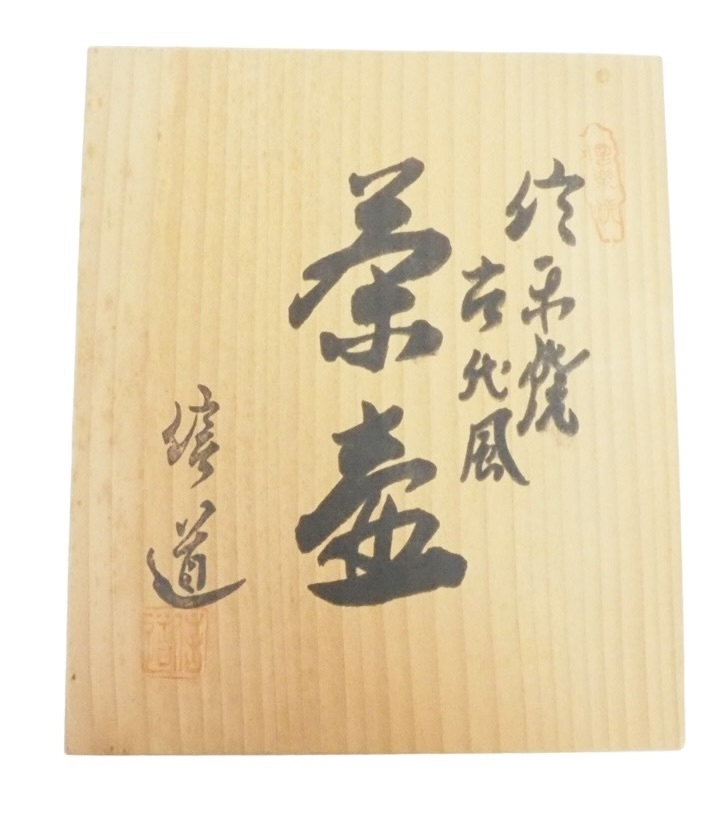 信楽焼
古代風
茶壷
信道